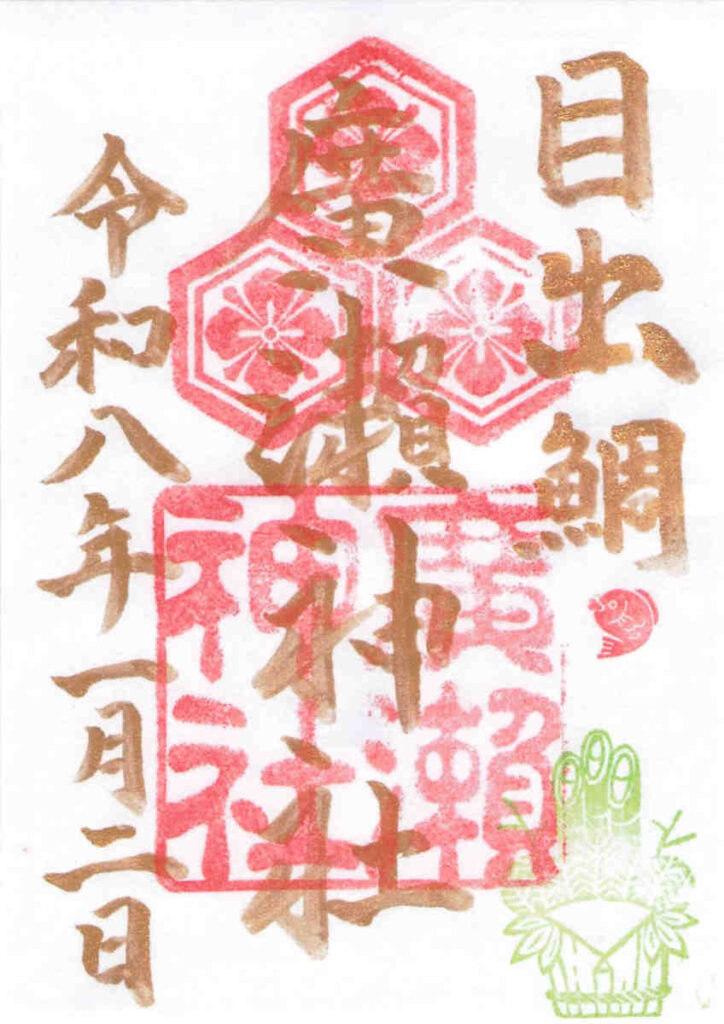 目出鯛
廣瀬神社
廣瀬神社
令和八年一月二日